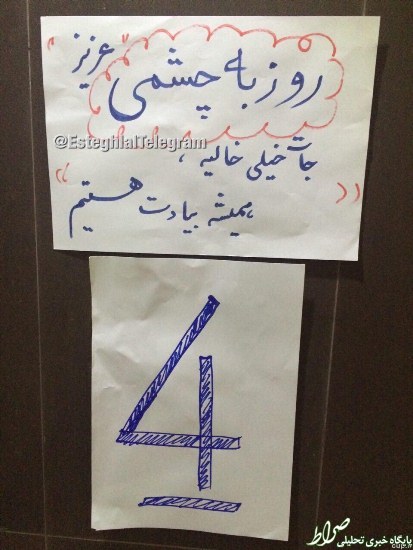 روزبه چشمی عزیز
@EsteghlalTelegram
جات خیلی خالیه ،
همیشه بیادت هستیم
4
صراط
پایگاه خبری تحلیلی